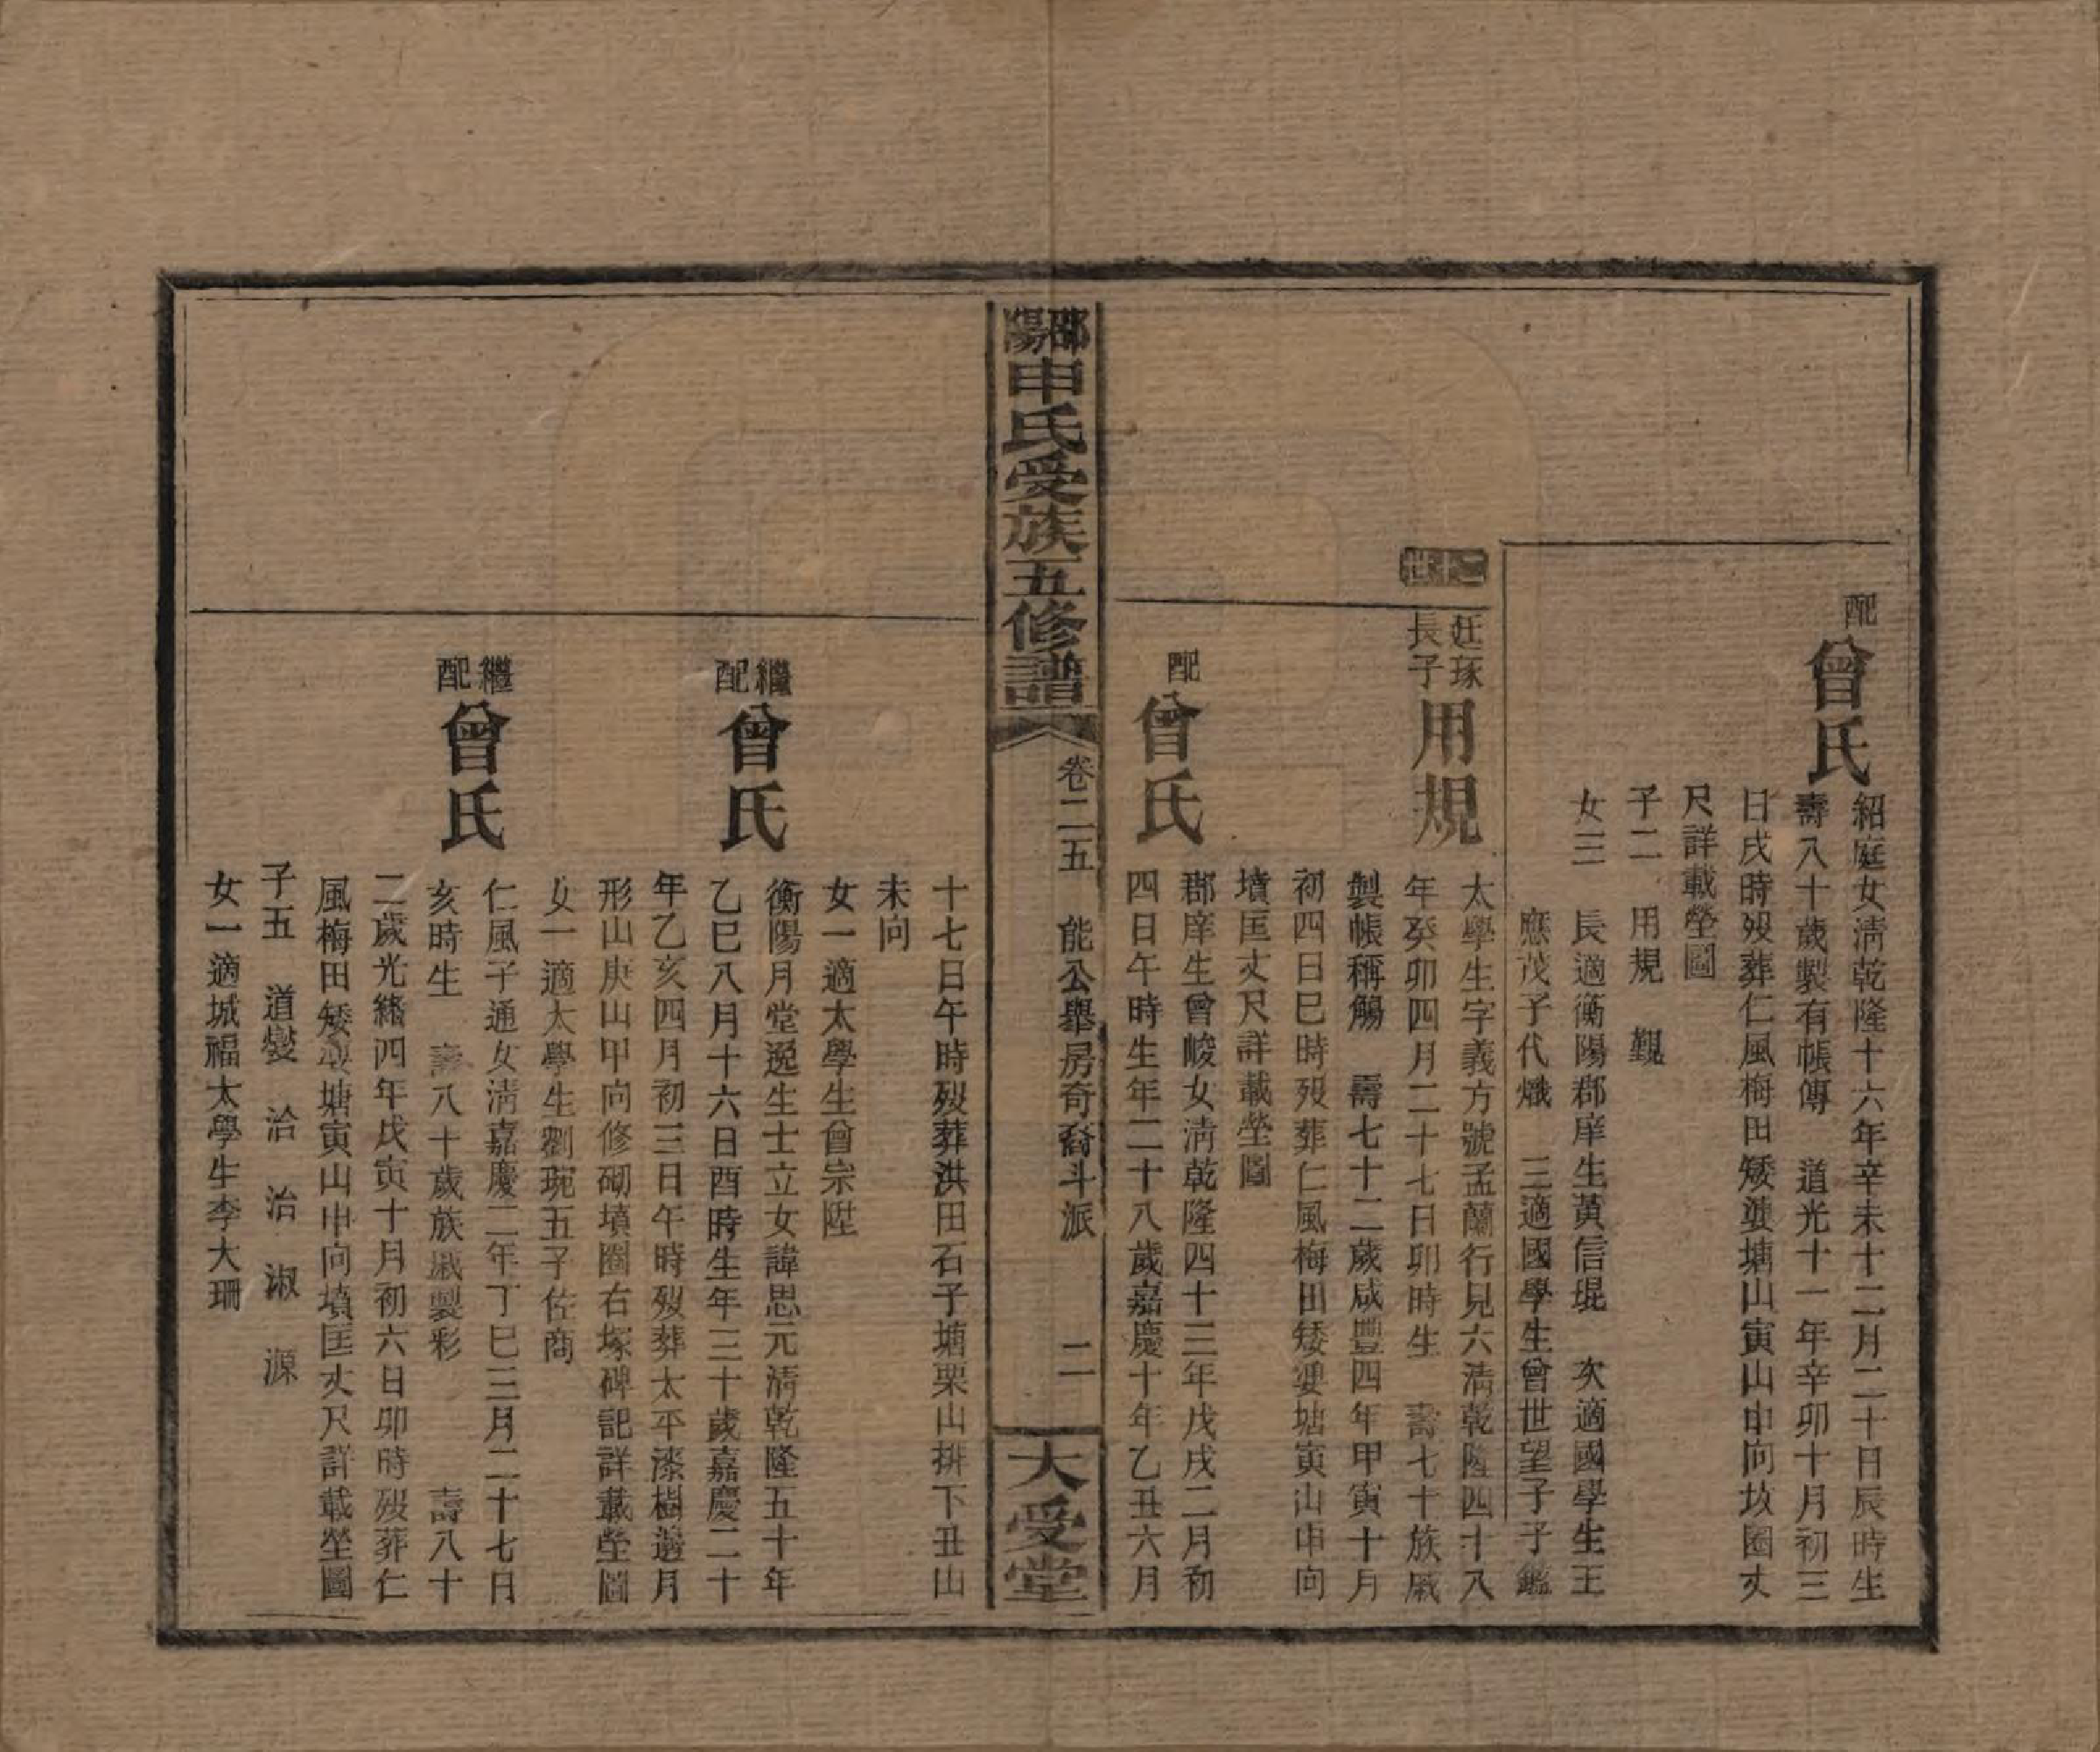 配
曾氏
紹庭女淸乾隆十六年辛未十二月二十日辰時生
壽八十歲製有帳傳　道光十一年辛卯十月初三
日戌時歿葬仁風梅田矮婆塘山寅山申向坟圈丈
尺詳載塋圖
子二　用規　覲
女三　長適衡陽郡庠生黃信堒　次適國學生王
應茂子代熾　三適國學生曾世望子子鑑
二十世
廷琢
長子
用規
太學生字義方號孟蘭行見六淸乾隆四十八
年癸卯四月二十七日卯時生　壽七十族戚
製帳稱觴　壽七十二歲咸豐四年甲寅十月
初四日巳時歿葬仁風梅田矮婆塘寅山申向
墳匡丈尺詳載塋圖
配
曾氏
郡庠生曾峻女淸乾隆四十三年戊戌二月初
四日午時生年二十八歲嘉慶十年乙丑六月
邵陽
申氏受族五修譜
卷二五　能公舉房奇裔斗派　二
大受堂
十七日午時歿葬洪田石子塘栗山排下丑山
未向
女一適太學生曾宗陞
繼配
曾氏
衡陽月堂逸生士立女諱思元淸乾隆五十年
乙巳八月十六日酉時生年三十歲嘉慶二十
年乙亥四月初三日午時歿葬太平漆樹邊月
形山庚山甲向修砌墳圈右塚碑記詳載塋圖
女一適太學生劉琬五子佐商
繼配
曾氏
仁風子通女淸嘉慶二年丁巳三月二十七日
亥時生　壽八十歲族戚製彩　壽八十
二歲光緒四年戊寅十月初六日卯時歿葬仁
風梅田矮婆塘寅山申向墳匡丈尺詳載塋圖
子五　道燮　洽　治　淑　源
女一適城福太學生李大珊